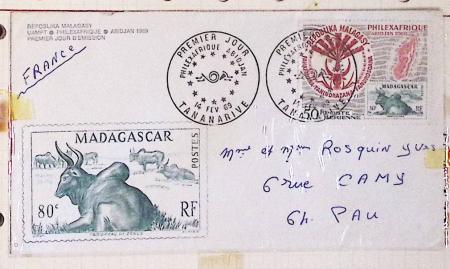 REPOBLIKA MALAGASY
UAMPT ● PHILEXAFRIQUE ● ABIDJAN 1969
PREMIER JOUR D'EMISSION
FRANCE
PREMIER JOUR
PHILEXAFRIQUE ABIDJAN
FEV 69
TANANARIVE
PREMIER JOUR
TANANARIVE
REPOBLIKA MALAGASY
PHILEXAFRIQUE
50F
POSTE
AERIENNE
80c
RF
MADAGASCAR
POSTES
80c
RF
Mme et Mr Rosquin Yves
6 rue CAMY
64. PAU